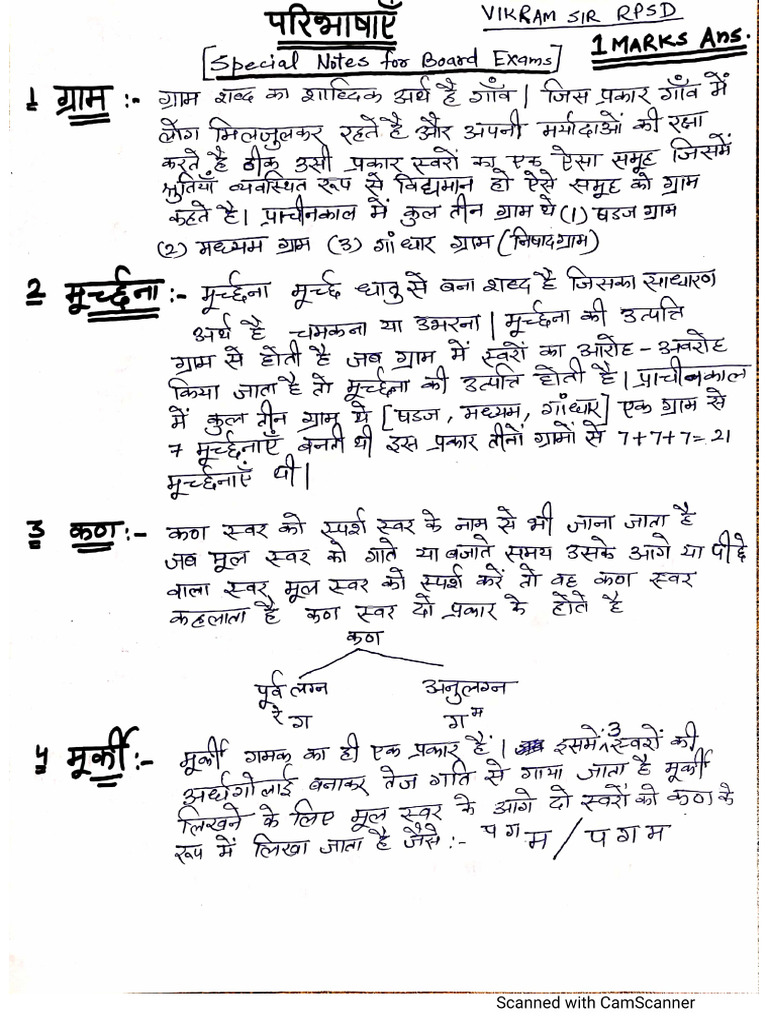 परिभाषाएँ
VIKRAM SIR RPSD
[Special Notes for Board Exams]
1 MARKS Ans.
1 ग्राम :- ग्राम शब्द का शाब्दिक अर्थ है गाँव | जिस प्रकार गाँव में
लोग मिलजुलकर रहते है और अपनी मर्यादाओं की रक्षा
करते है ठीक उसी प्रकार स्वरों का एक ऐसा समूह जिसमें
श्रुतियाँ व्यवस्थित रूप से विद्यमान हो ऐसे समूह को ग्राम
कहते है। प्राचीनकाल में कुल तीन ग्राम थे (1) षडज ग्राम
(2) मध्यम ग्राम (3) गांधार ग्राम (निषादग्राम)
2 मूर्च्छना :- मूर्च्छना मूर्च्छ धातु से बना शब्द है जिसका साधारण
अर्थ है चमकना या उभरना | मूर्च्छना की उत्पत्ति
ग्राम से होती है जब ग्राम में स्वरों का आरोह - अवरोह
किया जाता है तो मूर्च्छना की उत्पत्ति होती है | प्राचीनकाल
में कुल तीन ग्राम थे [षडज, मध्यम, गांधार] एक ग्राम से
7 मूर्च्छनाएँ बनती थी इस प्रकार तीनों ग्रामों से 7+7+7=21
मूर्च्छनाएँ थी |
3 कण :- कण स्वर को स्पर्श स्वर के नाम से भी जाना जाता है
जब मूल स्वर को गाते या बजाते समय उसके आगे या पीछे
वाला स्वर मूल स्वर को स्पर्श करें तो वह कण स्वर
कहलाता है कण स्वर दो प्रकार के होते है
कण
पूर्व लग्न अनुलग्न
रे ग ग म
4 मूर्की :- मूर्की गमक का ही एक प्रकार है | इसमें 3 स्वरों की
अर्धगोलाई बनाकर तेज गति से गाया जाता है मूर्की
लिखने के लिए मूल स्वर के आगे दो स्वरों को कण के
रूप में लिखा जाता है जैसे :- प ग म / प ग म
Scanned with CamScanner